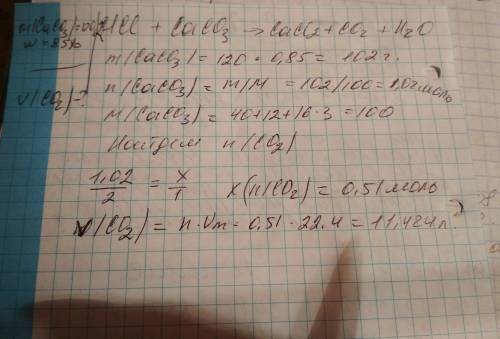 m(CaCO3)=
w = 85%
V(CO2)-?
HCl + CaCO3 → CaCl2 + CO2 + H2O
m(CaCO3) = 120 · 0,85 = 102 г.
n(CaCO3) = m/M = 102/100 = 1,02 моль
M(CaCO3) = 40+12+16·3 = 100
Найдем n(CO2)
1,02/2 = x/1 x(n(CO2) = 0,51 моль
V(CO2) = n·Vm = 0,51 · 22,4 = 11,424 л.